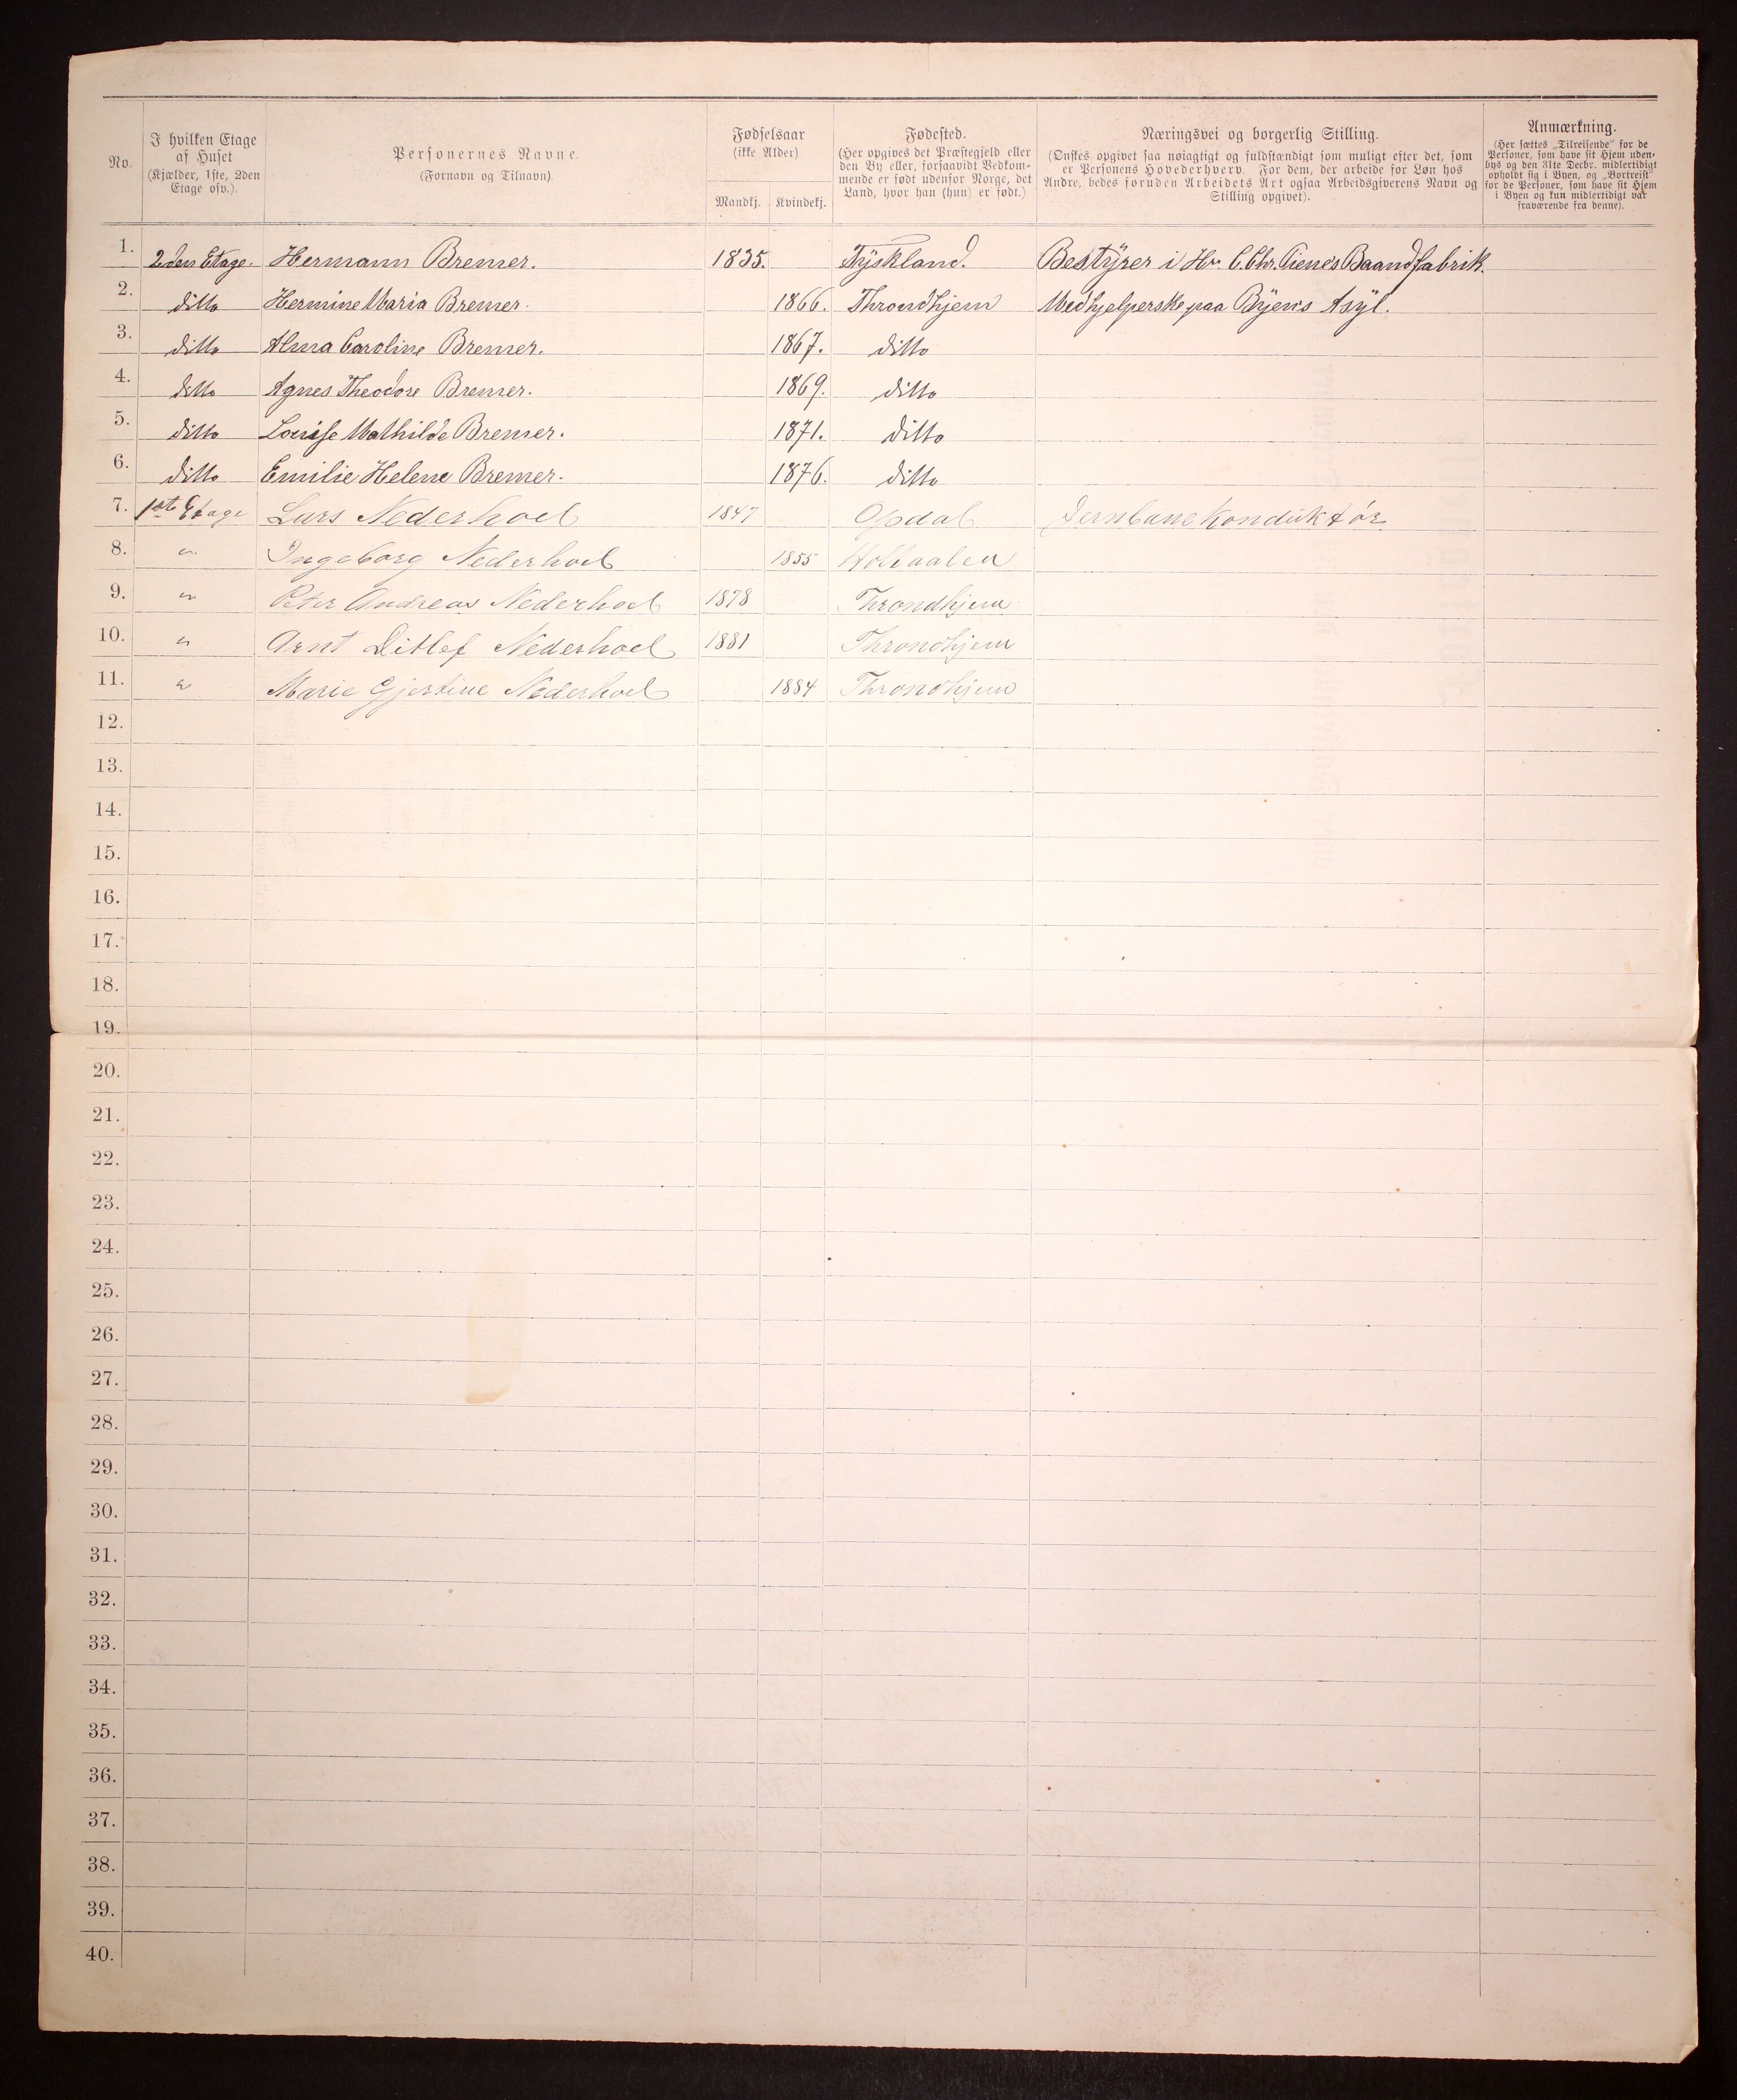 No.
I hvilken Etage
af Huset
(Kjælder, 1ste, 2den
Etage osv.).
Personernes Navne.
(Fornavn og Tilnavn)
Fødselsaar
(ikke Alder)
Mandkj.
Kvindekj.
Fødested.
(Her opgives det Præstegjeld eller
den By eller, forsaavidt Vedkom-
mende er født udenfor Norge, det
Land, hvor han (hun) er født.)
Næringsvei og borgerlig Stilling.
(Ønskes opgivet saa nøiagtigt og fuldstændigt som muligt efter det, som
er Personens Hovederhverv. For dem, der arbeide for Løn hos
Andre, bedes foruden Arbeidets Art ogsaa Arbeidsgiverens Navn og
Stilling opgivet).
Anmærkning.
(Her sættes „Tilreisende“ for de
Personer, som have sit Hjem uden-
bys og den 31te Decbr. midlertidigt
opholdt sig i Byen, og „Bortreist“
for de Personer, som have sit Hjem
i Byen og kun midlertidigt var
fraværende fra denne).
1. 2den Etage. Hermann Bremer. 1835. Tyskland. Bestyrer i Hr. C. Chr. Tienes Baandfabrik.
2. ditto Hermine Maria Bremer. 1866. Throndhjem Medhjelperske paa Byens Asyl.
3. ditto Alma Caroline Bremer. 1867. ditto
4. ditto Agnes Theodore Bremer. 1869. ditto
5. ditto Louise Mathilde Bremer. 1871. ditto
6. ditto Emilie Helene Bremer. 1876. ditto
7. 1st Etage Lars Nederhoel 1847 Opdal Jernbane Konduktør
8. " Ingeborg Nederhoel 1855 Holtaalen
9. " Peter Andreas Nederhoel 1878 Throndhjem
10. " Arnt Ditlef Nederhoel 1881 Throndhjem
11. " Marie Gjertine Nederhoel 1884 Throndhjem
12.
13.
14.
15.
16.
17.
18.
19.
20.
21.
22.
23.
24.
25.
26.
27.
28.
29.
30.
31.
32.
33.
34.
35.
36.
37.
38.
39.
40.